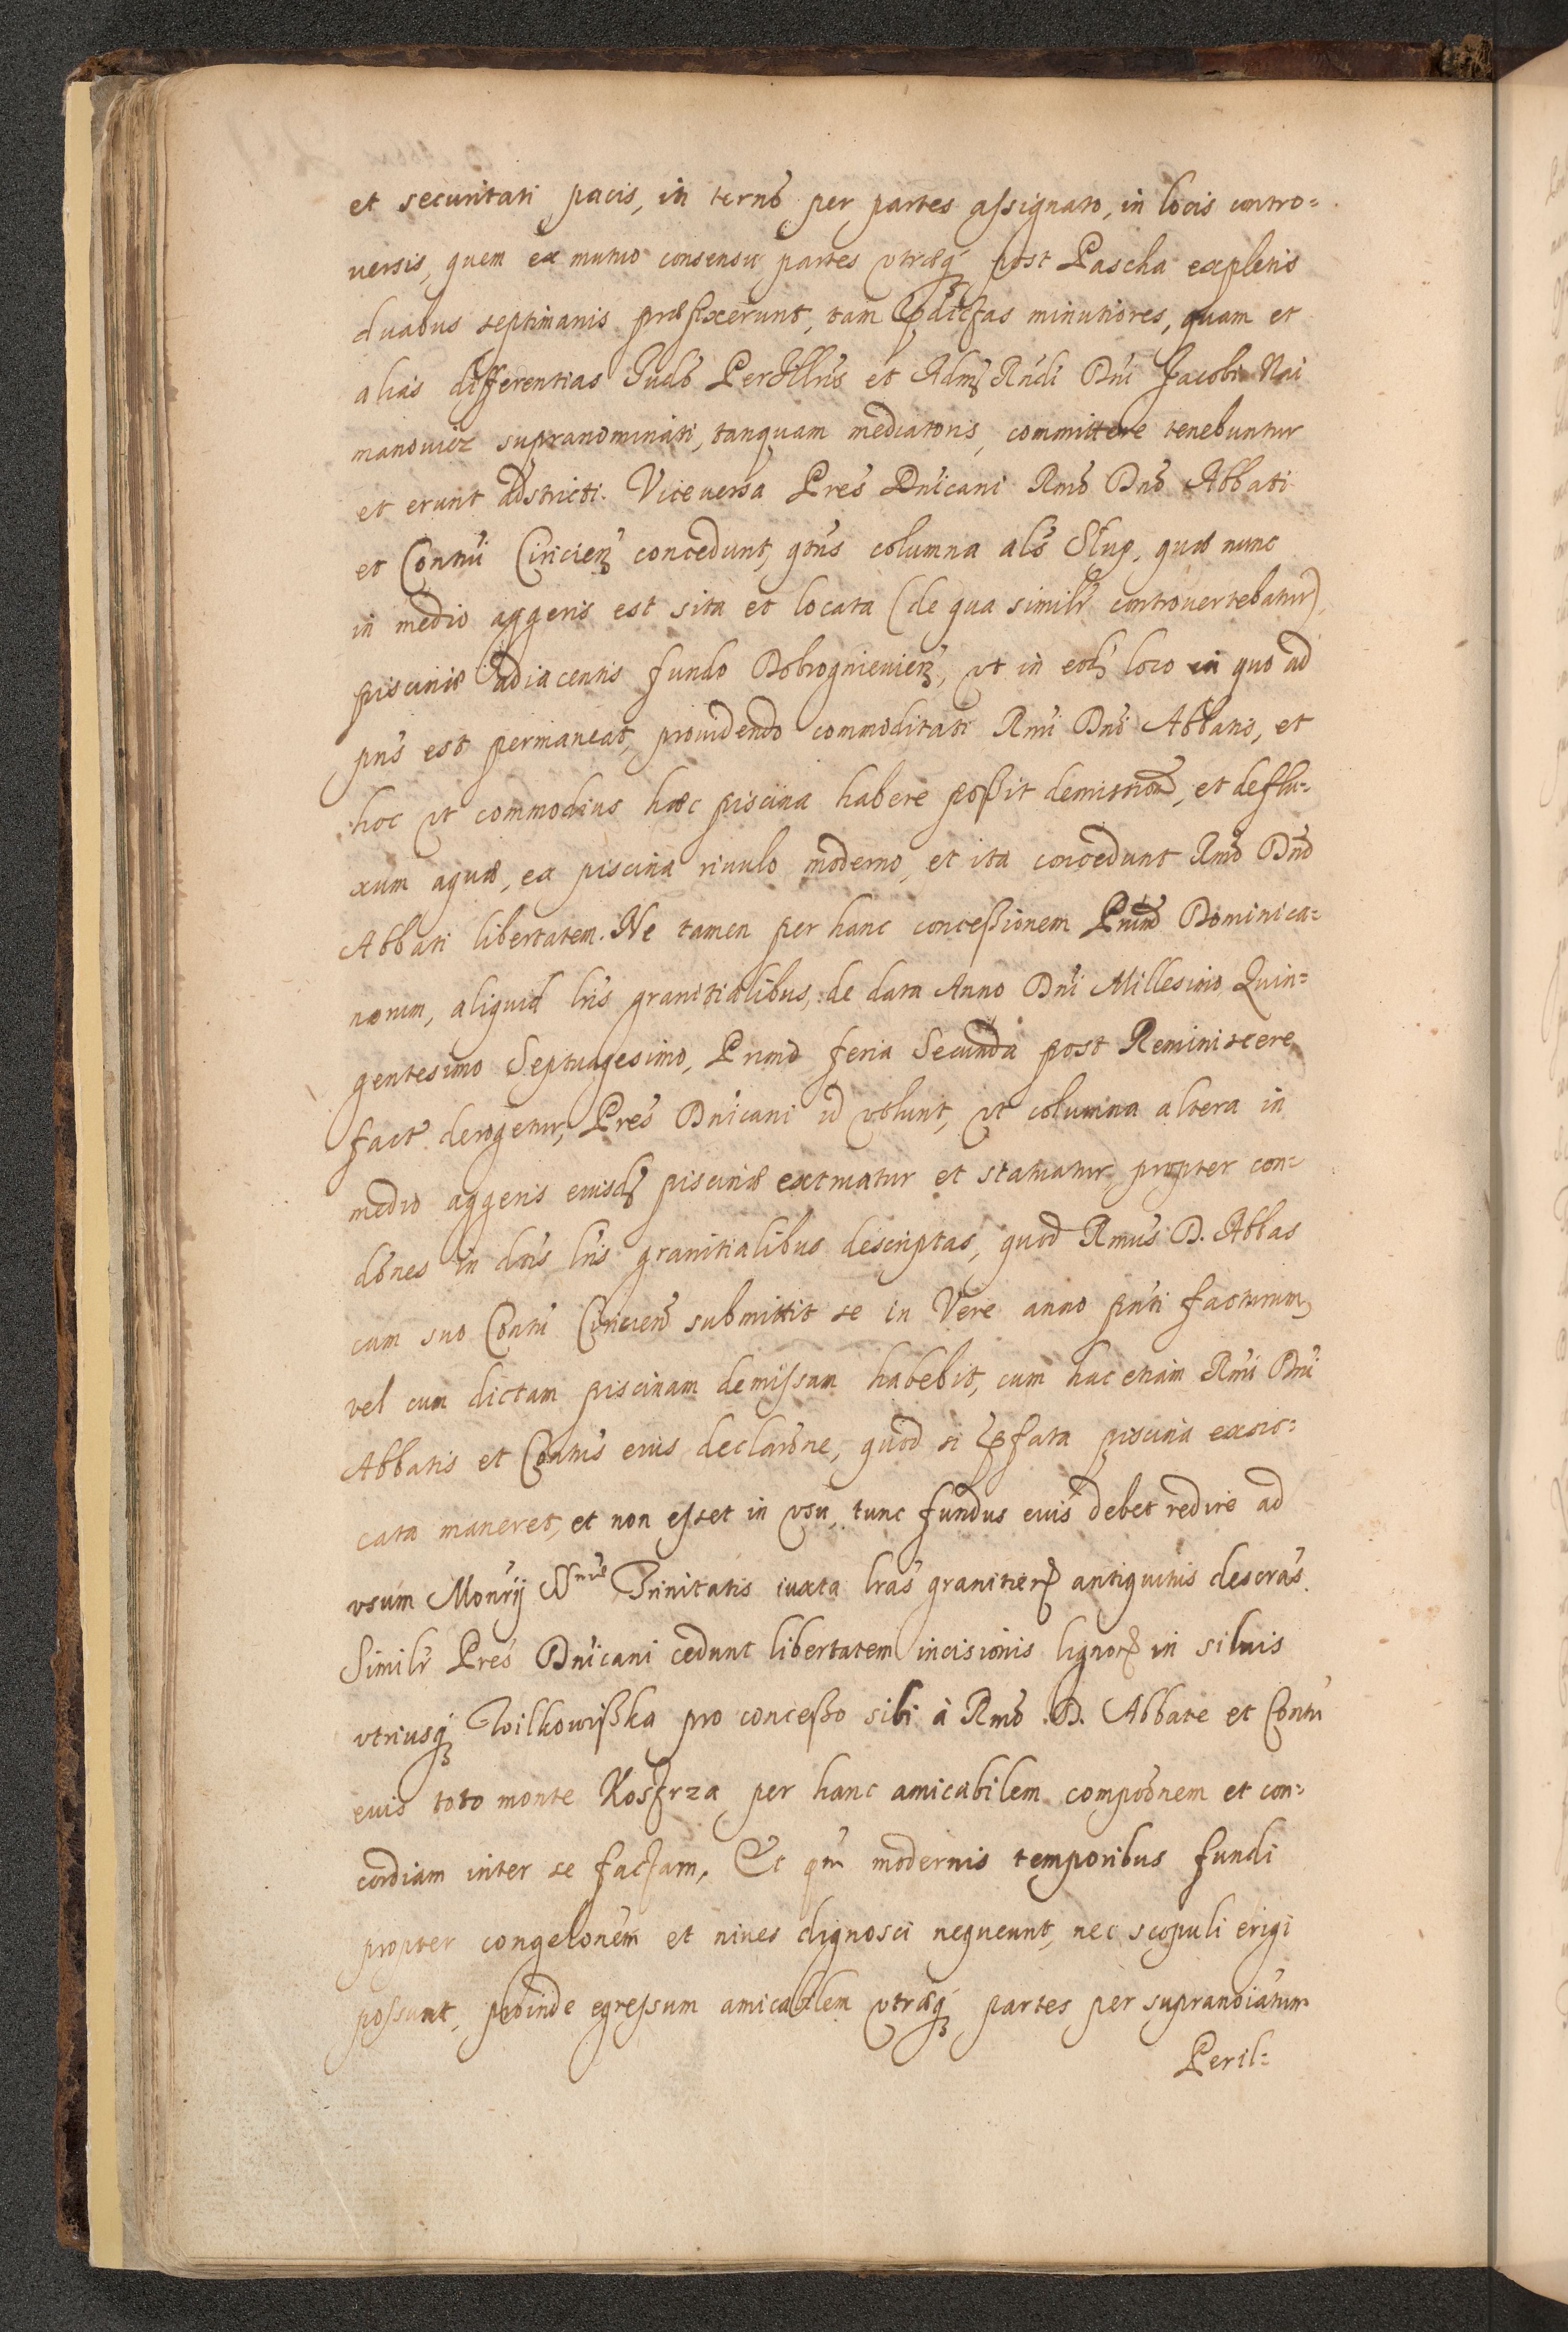 et securitati pacis, in termō per partes assignato, in locis contro=
uersis, quem ex mutuo consensu partes vtræq́ꝫ post Pascha expletis
duabus septimanis præfixerunt, tam p̄dictas minutiores, quam et
alias differentias Iudō PerIllris et Admꝫ Rndi Dni Jacobi Nai
manowicz supranominati, tanquam mediatoris, committere tenebuntur
et erunt adstricti. Vice versa Pres Dnicani Rmō Dnō Abbati
et Contui Ciricienꝫ concedunt, qtns columna als Slup, quæ nunc
in medio aggeris est sita et locata (de qua similr controuertebatur),
piscinæ adiacentis fundo Dobrognieuienꝫ, vt in eodꝫ loco in quo ad
pns est permaneat, prouidendo commoditati Rmi Dni Abbatis, et
hoc vt commodius hæc piscina habere poßit demissionē, et deflu=
xum aquæ, ex piscina riuulo moderno, et ita concedunt Rmō Dnō
Abbati libertatem. Ne tamen per hanc conceßionem Prum Dominica=
norum, aliquid lris granitialibus, de data Anno Dni Millesimo Quin=
gentesimo Septuagesimo, Primo feria Secunda post Reminiscere
fact derogetur, Pres Dnicani id volunt, vt columna altera in
medio aggeris eiusdꝫ piscinæ extruatur et statuatur, propter con=
dōnes in dtis lris granitialibus descriptas, quod Rmus D. Abbas
cum suo Contu Ciricien submittit se in Vere anno pnti facturum
vel cum dictam piscinam demissam habebit, cum hac etiam Rmi Dni
Abbatis et Contus eius declarōne, quod si p̄fata piscina exsic=
cata maneret, et non esset in vsu, tunc fundus eius debet redire ad
vsum Monrij SSmæ Trinitatis iuxta lras granitierꝫ antiquitus descras.
Similr Pres Dnicani cedunt libertatem incisionis lignorꝫ in siluis
vtriusq́ꝫ Wilkowißka pro conceßo sibi à Rmō D. Abbate et Contu
eius toto monte Kosſrza per hanc amicabilem compoōnem et con=
cordiam inter se factam. Et qm modernis temporibus fundi
propter congelōnem et niues dignosci nequeunt, nec scopuli erigi
possunt, proinde egressum amicabilem vtræq́ꝫ partes per supranoiatum
Peril=